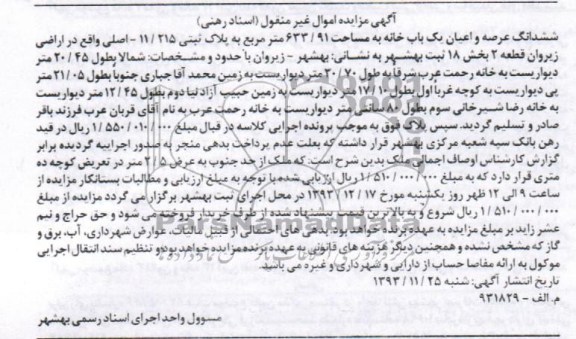 آگهی مزایده اموال غیر منقول (اسناد رهنی)
ششدانگ عرصه و اعیان یک باب خانه به مساحت ۶۳۳/۹۱ متر مربع به پلاک ثبتی ۱۱/۲۱۵ - اصلی واقع در اراضی
زیروان قطعه ۲ بخش ۱۸ ثبت بهشهر به نشانی: بهشهر - زیروان با حدود و مشخصات: شمالا بطول ۲۰/۴۵ متر
دیواریست به خانه رحمت عرب شرقا به طول ۳۰/۲۰ متر دیواریست به زمین محمد آقا جباری جنوبا بطول ۲۱/۰۵ متر
پی دیواریست به کوچه غربا اول بطول ۱۷/۱۰ متر دیواریست به زمین حبیب آزاد نیا دوم بطول ۱۲/۴۵ متر دیواریست
به خانه رضا شیرخانی سوم بطول متر دیواریست به خانه رحمت عرب به نام آقای قربان عرب فرزند باقر
صادر و تسلیم گردید. سپس پلاک فوق به موجب پرونده اجرایی کلاسه در قبال مبلغ ۱/۵۵۰/۰۱۰/۰۰۰ ریال در قید
رهن بانک سپه شعبه مرکزی بهشهر قرار داشته که بعلت عدم پرداخت بدهی منجر به صدور اجراییه گردیده برابر
گزارش کارشناس اوصاف اجمالی ملک بدین شرح است: که ملک از حد جنوب به عرض ۲/۵ متر در تعریض کوچه ده
متری قرار دارد که به مبلغ ۱/۵۱۰/۰۰۰/۰۰۰ ریال ارزیابی شده با توجه به مبلغ ارزیابی و مطالبات بستانکار مزایده از
ساعت ۹ الی ۱۲ ظهر روز یکشنبه مورخ ۱۳۹۳/۱۲/۱۷ در محل اجرای ثبت بهشهر برگزار می گردد مزایده از مبلغ
۱/۵۱۰/۰۰۰/۰۰۰ ریال شروع و به بالاترین قیمت پیشنهاد شده از طرف خریدار فروخته می شود و حق حراج و نیم
عشر زاید بر مبلغ مزایده به عهده برنده خواهد بود بدهی های احتمالی از قبیل مالیات، عوارض شهرداری، آب، برق و
گاز که مشخص نشده و همچنین دیگر هزینه های قانونی به عهده برنده مزایده خواهد بود و تنظیم سند انتقال اجرایی
موکول به ارائه مفاصا حساب از دارایی و شهرداری و غیره می باشد.
تاریخ انتشار آگهی: شنبه ۱۳۹۳/۱۱/۲۵
م. الف - ۹۳۱۸۲۹
مسوول واحد اجرای اسناد رسمی بهشهر